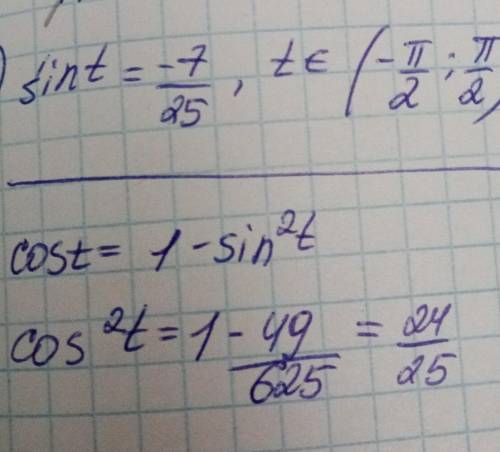 ) sin t = -7/25, t ∈ (-π/2; π/2)
cost = 1 - sin²t
cos²t = 1 - 49/625 = 24/25